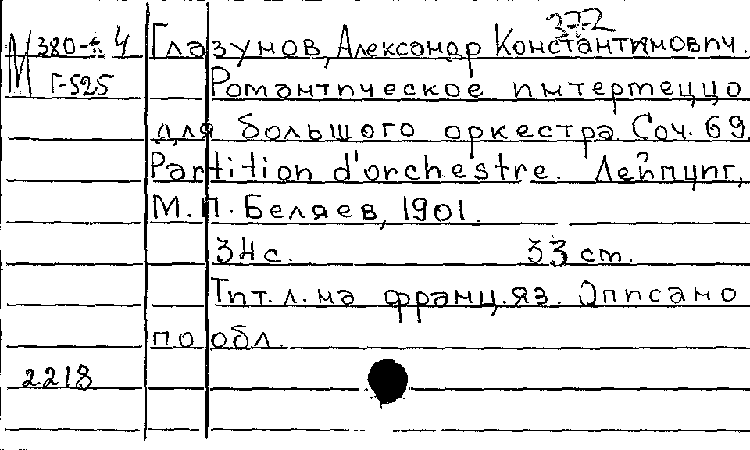 372
М 380-5 4 Глазунов, Александр Константинович.
Г-525 Романтическое интермеццо
для большого оркестра. Соч. 69
Partition d'orchestre. Лейпциг,
М.П. Беляев, 1901.
34 с. 33 ст.
Тит. л. на франц. яз. Описано
по обл.
2218